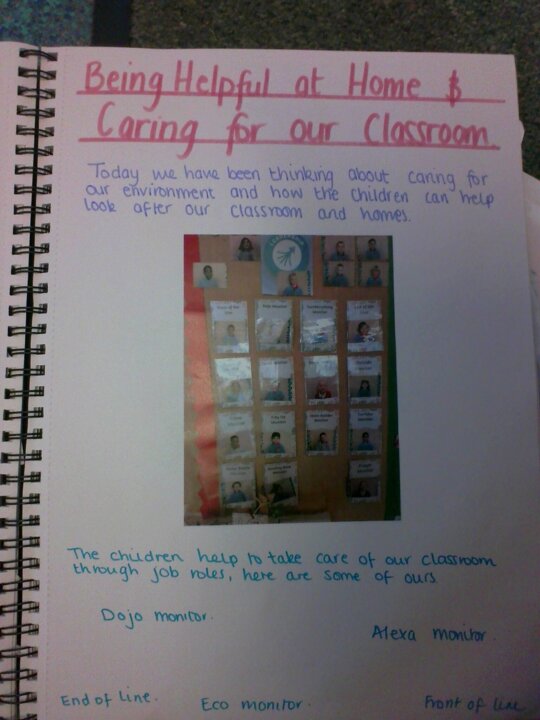 Being Helpful at Home &
Caring for our Classroom
Today we have been thinking about caring for
our environment and how the children can help
look after our classroom and homes.
The children help to take care of our classroom
through job roles, here are some of ours
Dojo monitor.
Alexa monitor.
End of Line.
Eco monitor.
Front of line